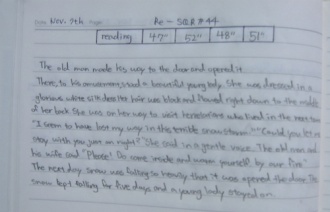 Date Nov. 9th Page Re-SQR#44
reading 47" 52" 48" 51"
The old man made his way to the door and opened it.
There, to his amazement, stood a beautiful young lady. She was dressed in a
glorious white silk dress. Her hair was black and flowed right down to the middle
of her back. She was on her way to visit here who lived in the next town.
"I seem to have lost my way in the terrible snow storm." "Could you let me
stay with you just on night?" She said in a gentle voice. The old man and
his wife said "Please! Do come inside and warm yourself by our fire."
The next day snow was falling so heavily that it was opened the door. The
snow kept falling for five days and a young lady stayed on.